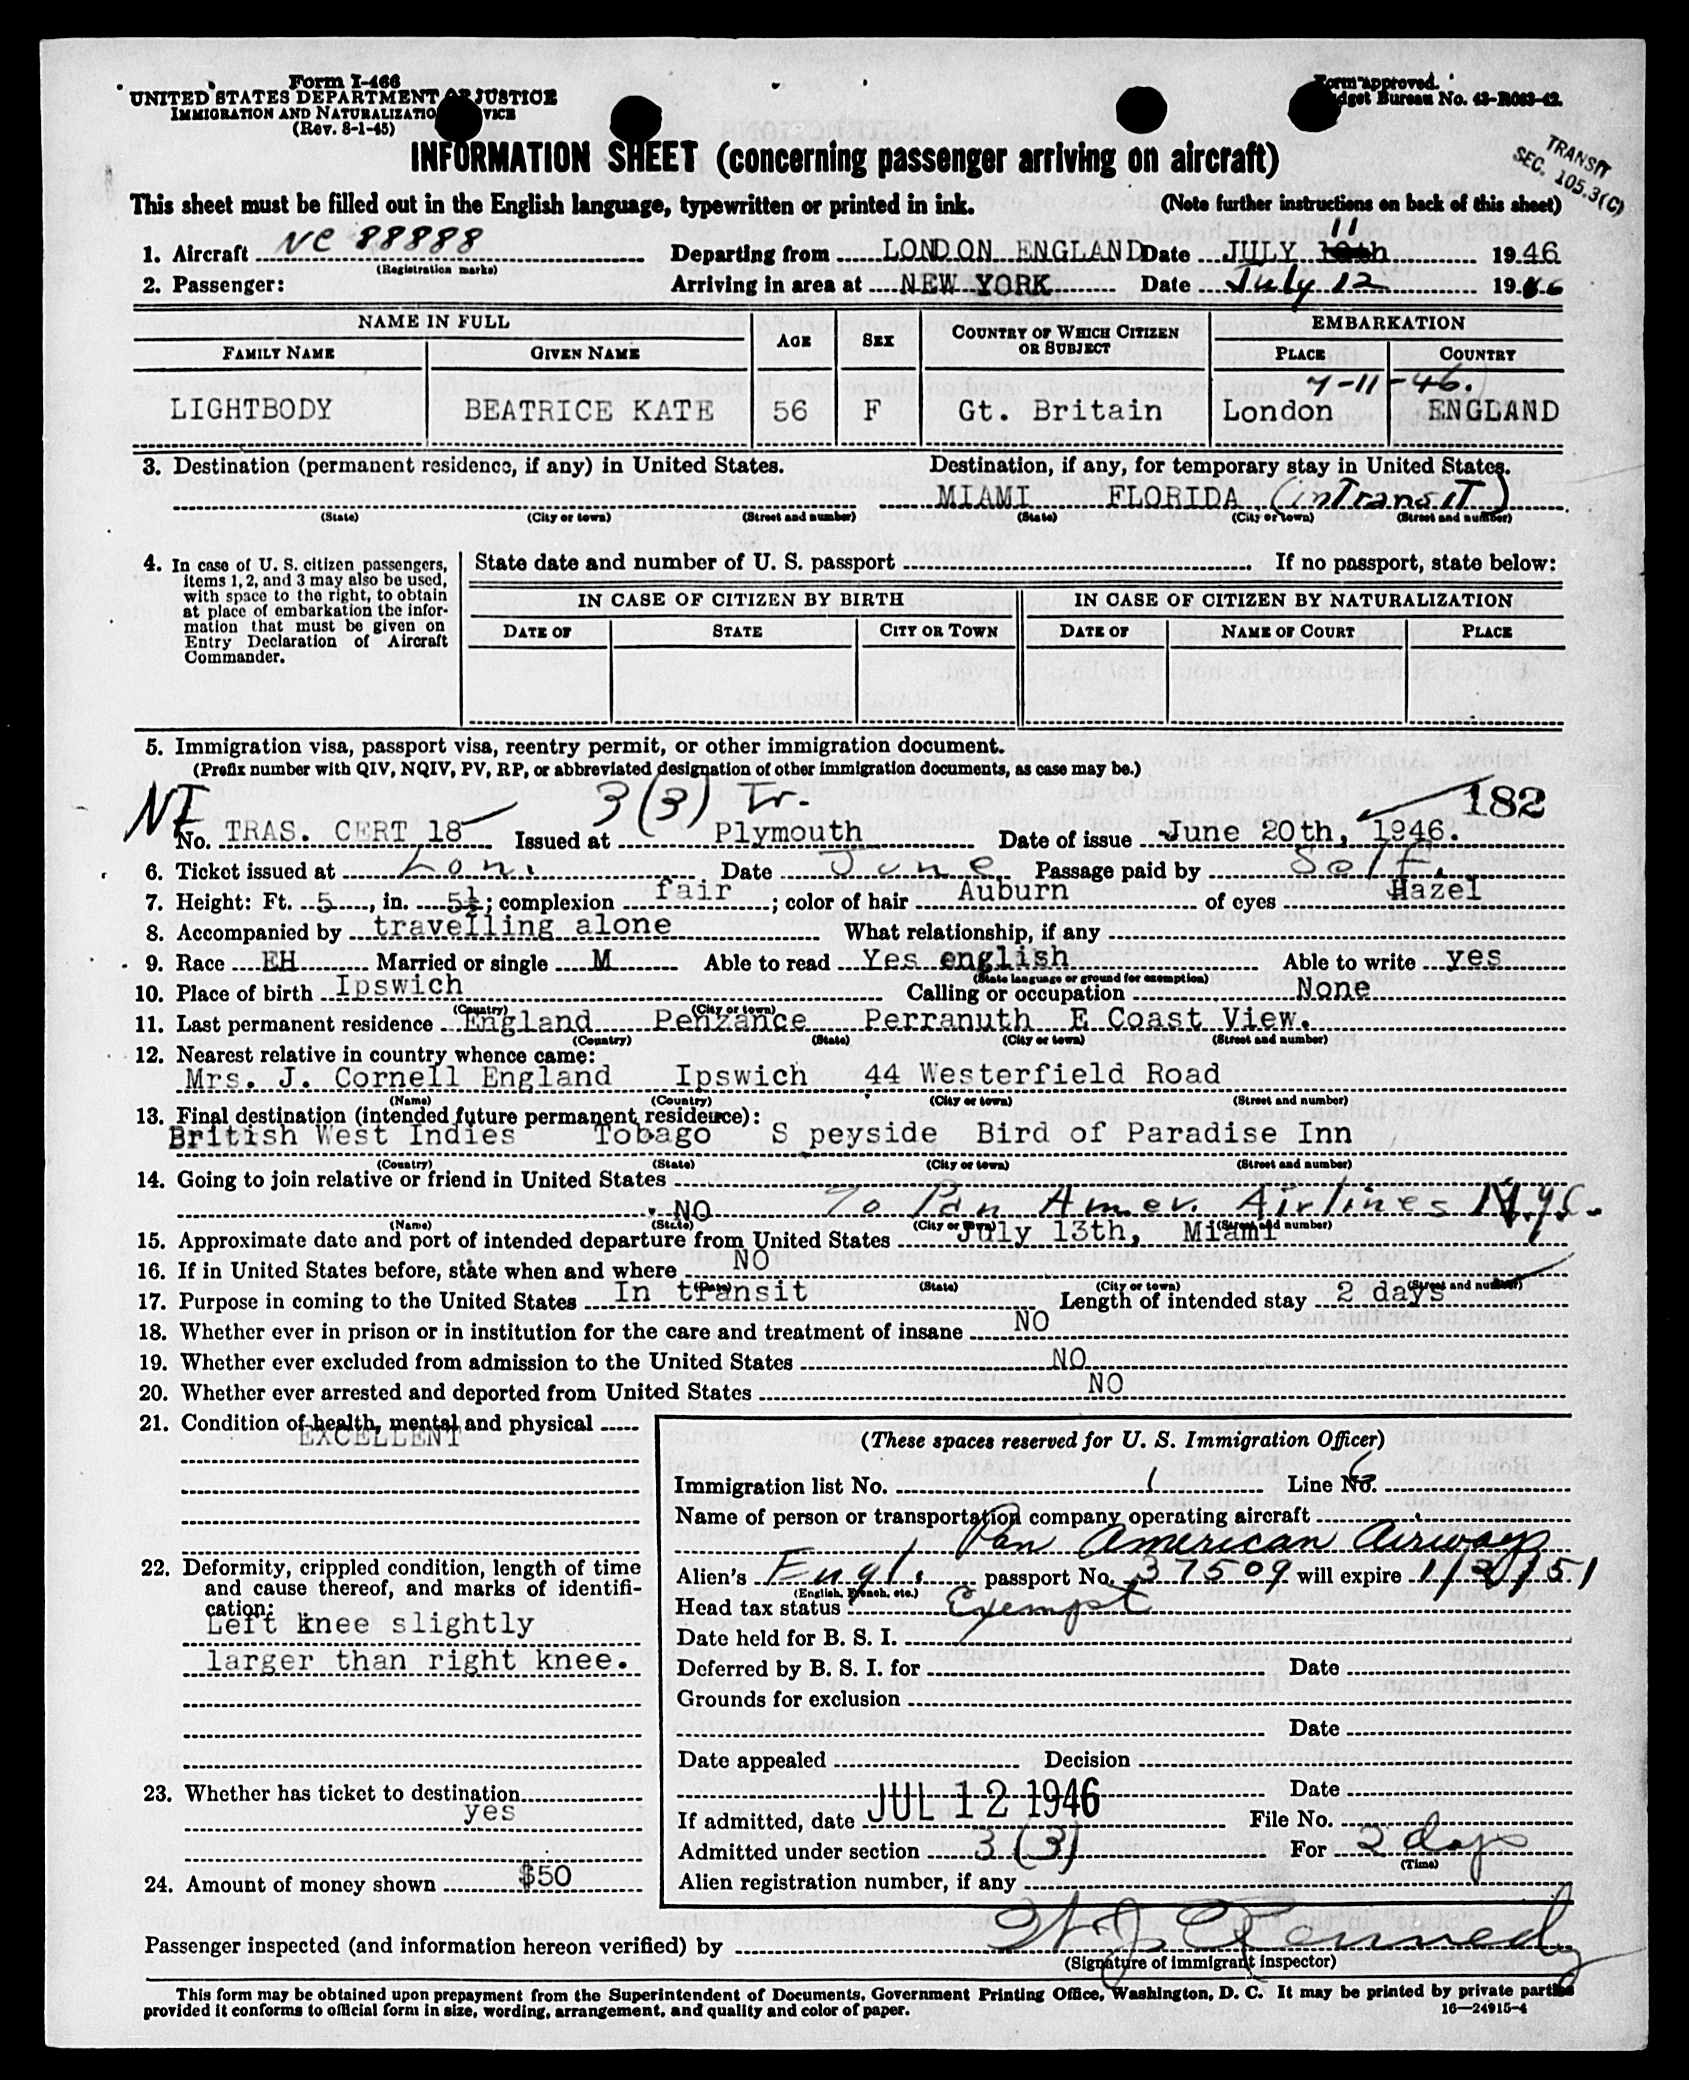 Form I-466
UNITED STATES DEPARTMENT OF JUSTICE
IMMIGRATION AND NATURALIZATION SERVICE
(Rev. 8-1-45)
Form approved.
Budget Bureau No. 43-R063-42.
INFORMATION SHEET (concerning passenger arriving on aircraft)
TRANSIT
SEC. 105.3(C)
This sheet must be filled out in the English language, typewritten or printed in ink. (Note further instructions on back of this sheet)
11
1. Aircraft NC 88888 Departing from LONDON ENGLAND Date JULY 1946
(Registration marks)
2. Passenger: Arriving in area at NEW YORK Date July 12 1946
NAME IN FULL AGE SEX COUNTRY OF WHICH CITIZEN OR SUBJECT EMBARKATION
FAMILY NAME GIVEN NAME PLACE COUNTRY
7-11-46.
LIGHTBODY BEATRICE KATE 56 F Gt. Britain London ENGLAND
3. Destination (permanent residence, if any) in United States. Destination, if any, for temporary stay in United States.
MIAMI FLORIDA (inTransiT)
(State) (City or town) (Street and number) (State) (City or town) (Street and number)
4. In case of U. S. citizen passengers, items 1, 2, and 3 may also be used, with space to the right, to obtain at place of embarkation the information that must be given on Entry Declaration of Aircraft Commander.
State date and number of U. S. passport If no passport, state below:
IN CASE OF CITIZEN BY BIRTH IN CASE OF CITIZEN BY NATURALIZATION
DATE OF STATE CITY OR TOWN DATE OF NAME OF COURT PLACE
5. Immigration visa, passport visa, reentry permit, or other immigration document.
(Prefix number with QIV, NQIV, PV, RP, or abbreviated designation of other immigration documents, as case may be.)
3(3) Tr. 182
No. TRAS. CERT 18 Issued at Plymouth Date of issue June 20th, 1946.
6. Ticket issued at Lon. Date June Passage paid by Self.
7. Height: Ft. 5, in. 5½; complexion fair; color of hair Auburn of eyes Hazel
8. Accompanied by travelling alone What relationship, if any
9. Race EH Married or single M Able to read Yes english Able to write yes
(State language or ground for exemption)
10. Place of birth Ipswich Calling or occupation None
(Country) (City or town)
11. Last permanent residence England Penzance Perranuth E Coast View.
(Country) (State) (City or town) (Street and number)
12. Nearest relative in country whence came:
Mrs. J. Cornell England Ipswich 44 Westerfield Road
(Name) (Country) (City or town) (Street and number)
13. Final destination (intended future permanent residence):
British West Indies Tobago S peyside Bird of Paradise Inn
(Country) (State) (City or town) (Street and number)
14. Going to join relative or friend in United States
NO To Pan Amer. Airlines N.Y.C.
(Name) (State) (City or town) (Street and number)
15. Approximate date and port of intended departure from United States July 13th, Miami
16. If in United States before, state when and where NO
(Date) (State) (City or town) (Street and number)
17. Purpose in coming to the United States In transit Length of intended stay 2 days
18. Whether ever in prison or in institution for the care and treatment of insane NO
19. Whether ever excluded from admission to the United States NO
20. Whether ever arrested and deported from United States NO
21. Condition of health, mental and physical
EXCELLENT
22. Deformity, crippled condition, length of time and cause thereof, and marks of identification:
Left knee slightly
larger than right knee.
23. Whether has ticket to destination
yes
24. Amount of money shown $50
(These spaces reserved for U. S. Immigration Officer)
Immigration list No. 1 Line No. 6
Name of person or transportation company operating aircraft
Pan American Airways
Alien's Engl. passport No. 37509 will expire 1/2/51
(English, French, etc.)
Head tax status Exempt
Date held for B. S. I.
Deferred by B. S. I. for Date
Grounds for exclusion
Date
Date appealed Decision
Date
If admitted, date JUL 12 1946 File No.
Admitted under section 3(3) For 2 days
(Time)
Alien registration number, if any
Passenger inspected (and information hereon verified) by W J Kennedy
(Signature of immigrant inspector)
This form may be obtained upon prepayment from the Superintendent of Documents, Government Printing Office, Washington, D. C. It may be printed by private parties
provided it conforms to official form in size, wording, arrangement, and quality and color of paper. 16—24915-4